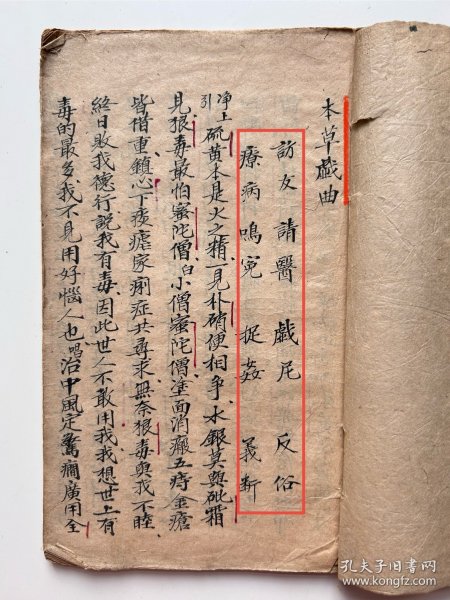 本草戯曲
訪友 請醫 戯尾 反俗
療病 鳴寃 捉姦 義斬
净上引 硫黄本是火之精一見朴硝便相争水銀莫與砒霜
見狠毒最怕蜜陀僧白小僧蜜陀僧塗面消瘢五痔金瘡
皆借重鎮心下痰瘧家痢症共尋求無奈狠毒與我不睦
終日敗我德行説我有毒因此世人不敢用我我想世上有
毒的最多我不見用好惱人也唱治中風定驚癇廣用全
孔夫子旧书网
www.kongfz.com